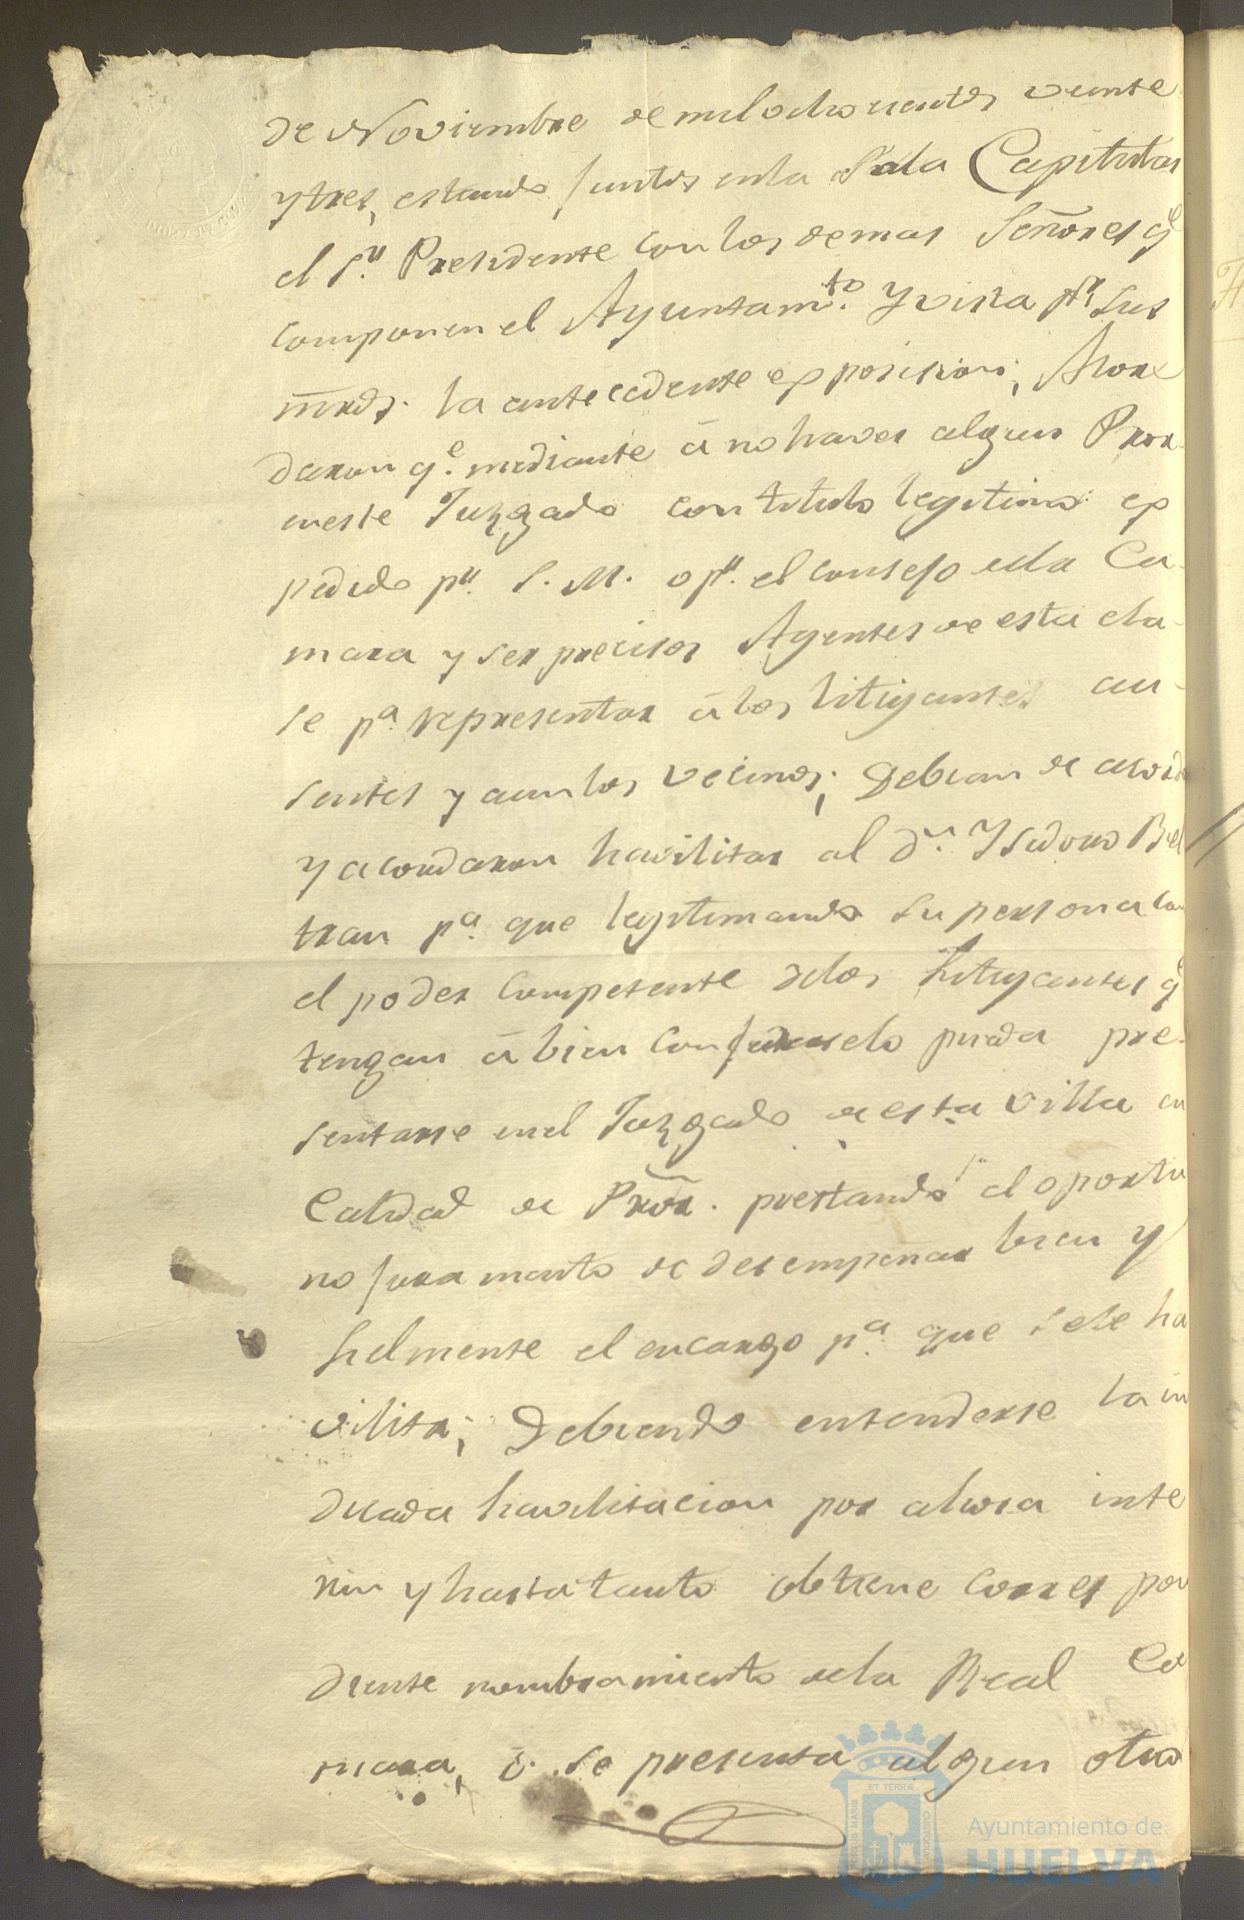 de Noviembre de mil ochocientos veinte
y tres, estando juntos en la Sala Capitular
el Sr. Presidente con los demas Señores qe
componen el Ayuntamto. y vista pr. sus
mrds. la antecedente exposision; Acor
daron qe. mediante á no haver algun Pror.
en este Juzgado con titulo legitimo ex
pedido pr. S. M. o pr. el consejo de la Ca-
mara y ser precisos Agentes de esta cla-
se pa. representar á los litigantes au-
sentes y aun los vecinos; Debian de acord
y acordaron havilitar al Dn. Ysidoro Bel
tran pa. que legitimando su persona con
el poder competente de los Litigantes qe
tengan á bien conferirselo pueda pre-
sentarse en el Juzgado de esta villa en
Calidad de Pror. prestando el oportu
no juramento de desempeñar bien y
fielmente el encargo pa. que se le ha
vilita; Debiendo entenderse la in
dicada havilitacion por ahora inte
rin y hasta tanto obtiene corres pon
diente nombramiento de la Real Ca
mara, ó se presenta algun otro
Ayuntamiento de
HUELVA